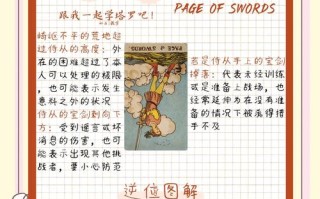 跟我一起学塔罗吧!
PAGE OF SWORDS
崎岖不平的荒地超
过侍从的高度：外
在的困难超过了本
人可以处理的极限
，也可能表示发生
意料之外的状况
侍从的宝剑刺向下
方：受到谣言或坏
消息的伤害，也可
能表示出现其他挑
战者，要小心防范
PAGE of SWORDS
若是侍从手上的宝剑
掉落：代表未经训练
或是准备上战场，也
经常延伸为在没有准
备的情况下被逼得措
手不及
逆位图解